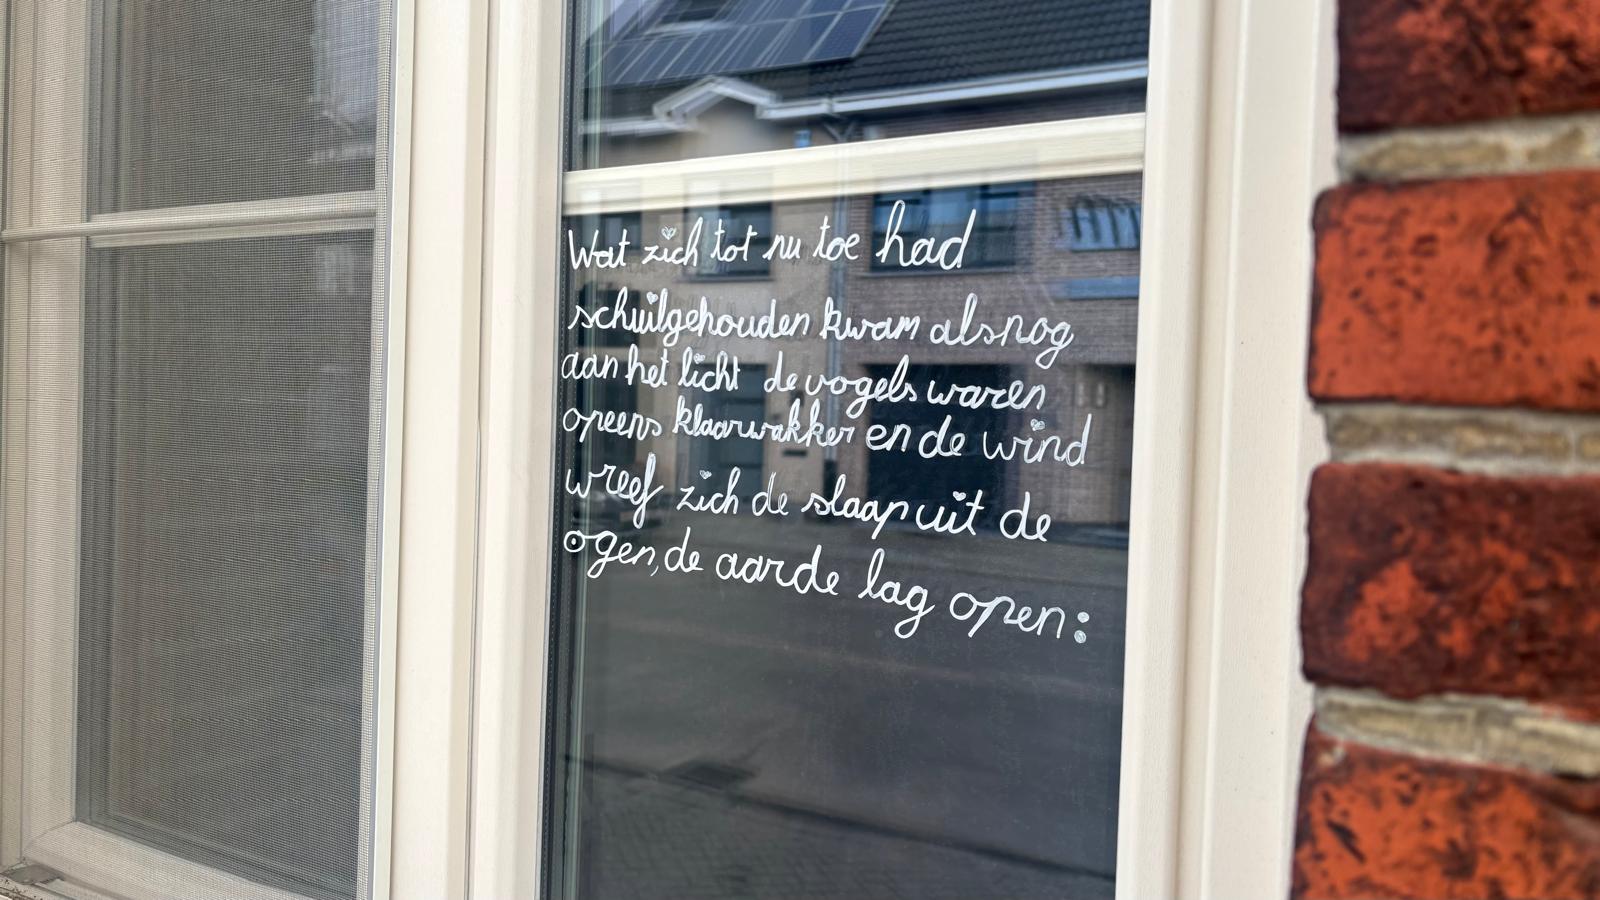 Wat zich tot nu toe had
schuilgehouden kwam alsnog
aan het licht de vogels waren
opeens klaarwakker en de wind
wreef zich de slaap uit de
ogen, de aarde lag open: